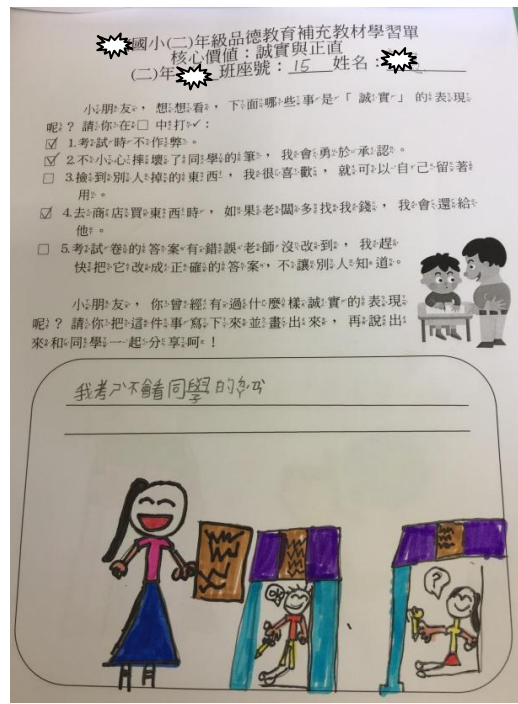 國小(二)年級品德教育補充教材學習單
核心價值：誠實與正直
(二)年 班座號：15 姓名：
小朋友，想想看，下面哪些事是「誠實」的表現
呢？請你在□中打✓：
☑ 1.考試時不作弊。
☑ 2.不小心摔壞了同學的筆，我會勇於承認。
□ 3.撿到別人掉的東西，我很喜歡，就可以自己留著
用。
☑ 4.去商店買東西時，如果老闆多找我錢，我會還給
他。
□ 5.考試卷的答案有錯誤老師沒改到，我趕
快把它改成正確的答案，不讓別人知道。
小朋友，你曾經有過什麼樣誠實的表現
呢？請你把這件事寫下來並畫出來，再說出
來和同學一起分享呵！
我考 不會看同學的
?